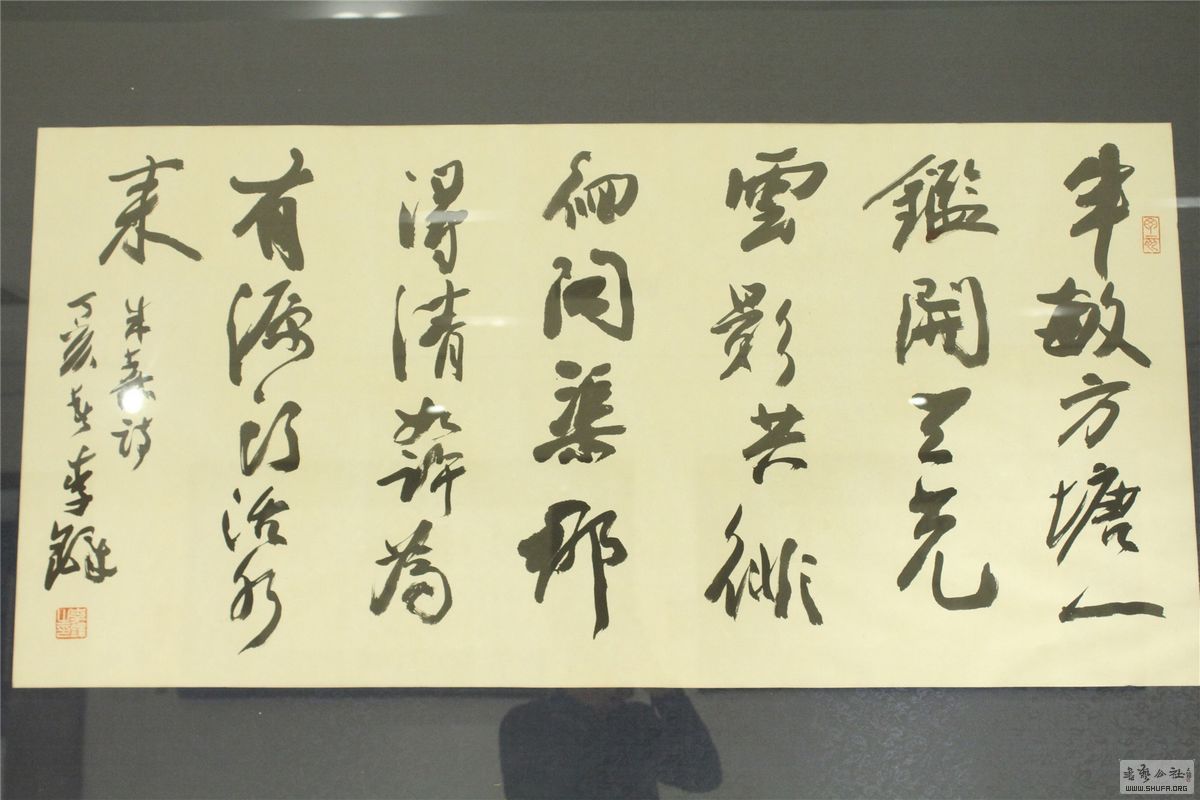 半畝方塘一
鑑開天光
雲影共徘
徊問渠那
得清如許為
有源頭活水
来
朱熹詩
丁亥春李鐸
书艺公社
WWW.SHUFA.ORG